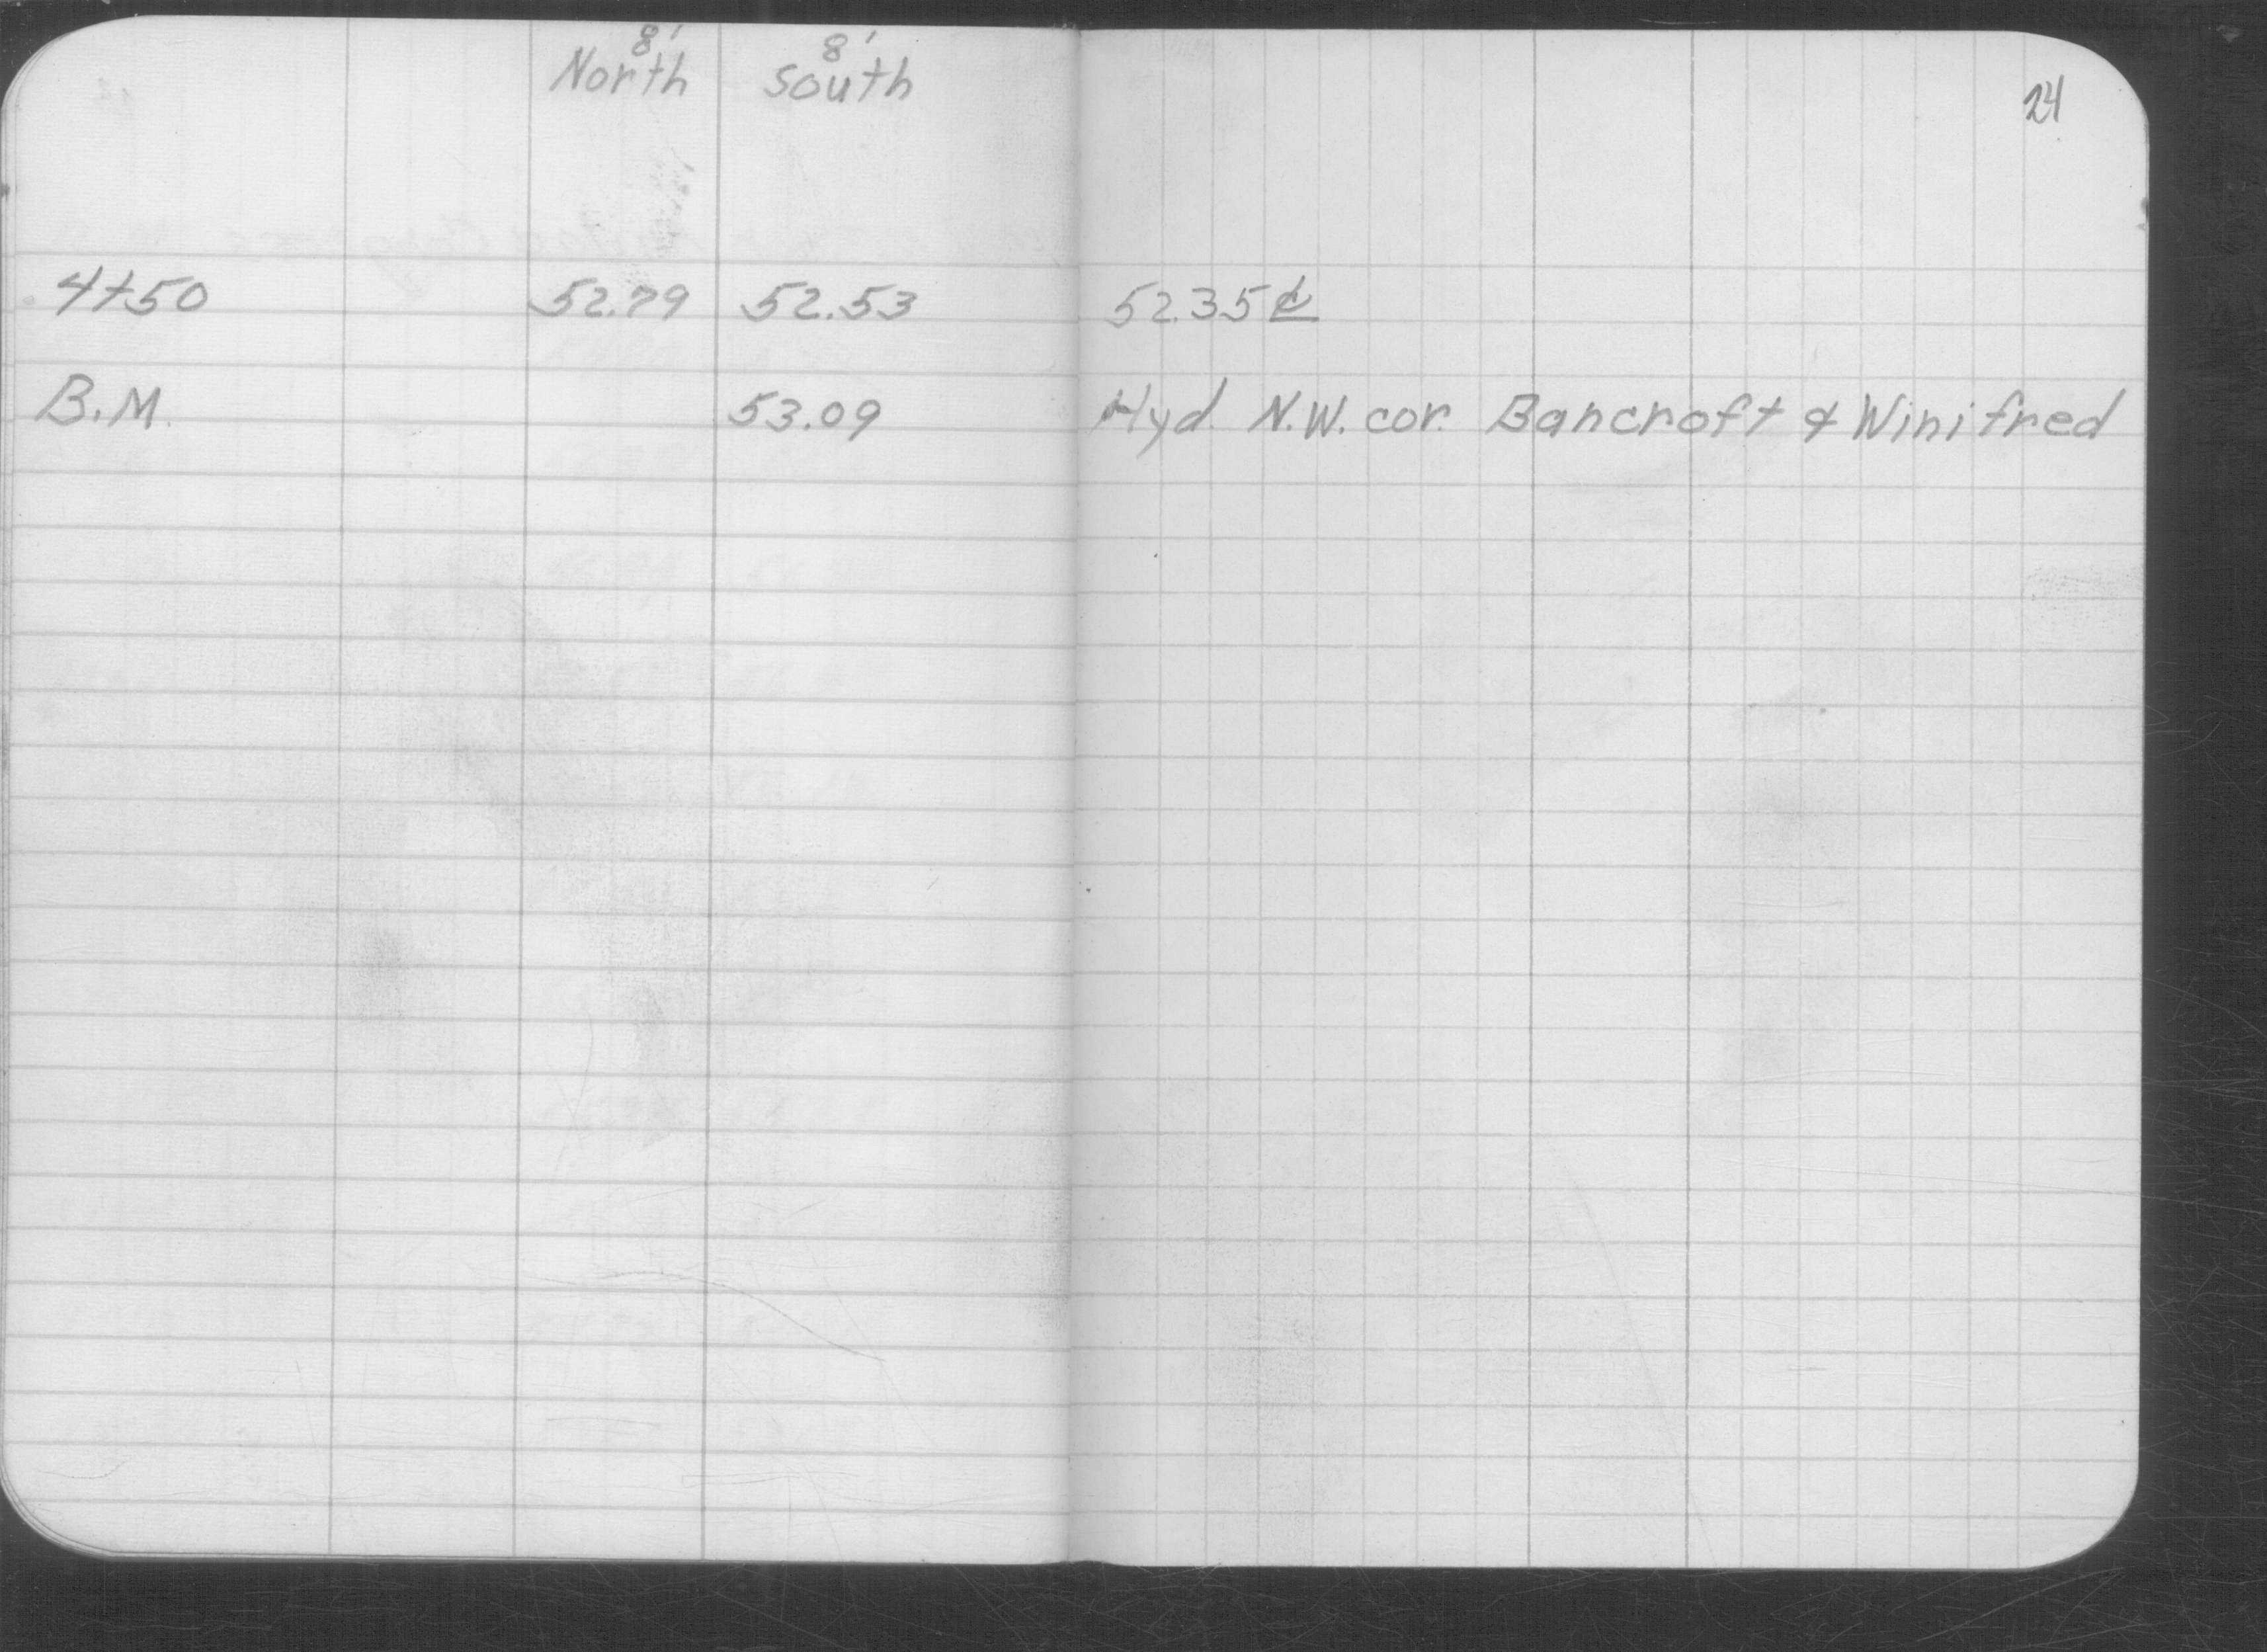 8' 8'
North South
24
4+50 52.79 52.53 52.35 ℄
B.M. 53.09 Hyd. N.W. cor. Bancroft & Winifred